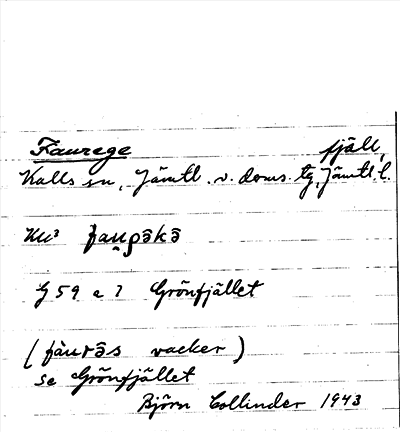 Faurege fjäll,
Kalls sn, Jämtl. v. doms. tg, Jämtl. l.
Ku³ fau̯ρə̄kə̄
G 59 a 7 Grönfjället
(fàurə̄s vacker)
se Grönfjället
Björn Collinder 1943